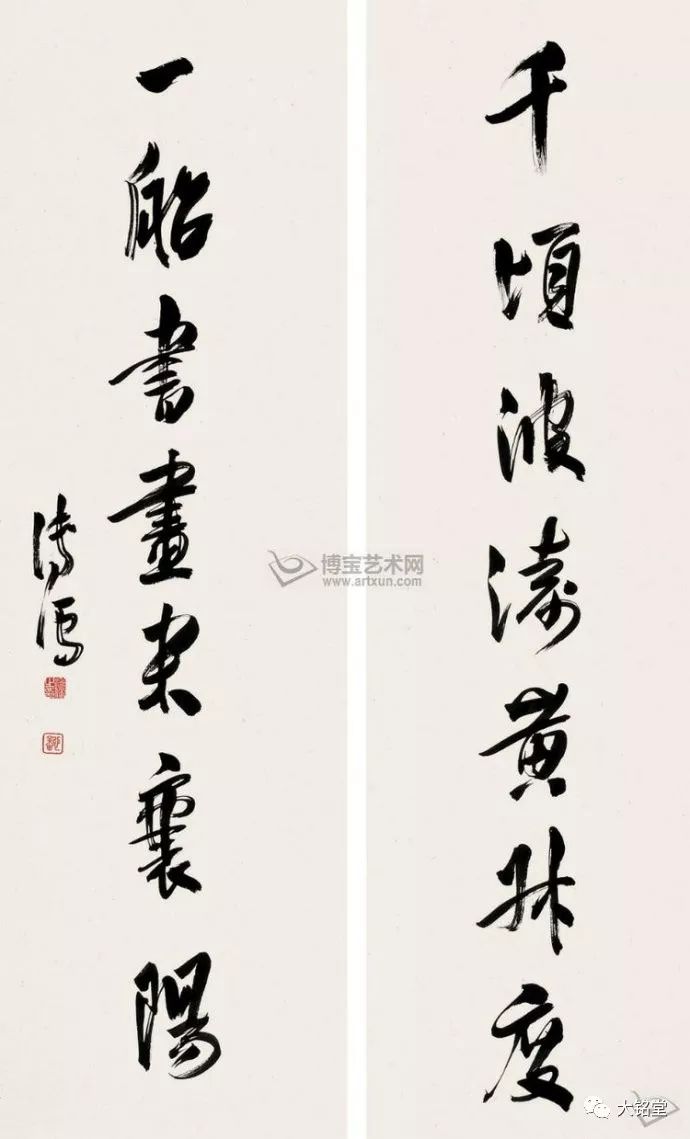 千頃波濤黃叔度
一船書畫米襄陽
溥儒
博宝艺术网
www.artxun.com
大铭堂